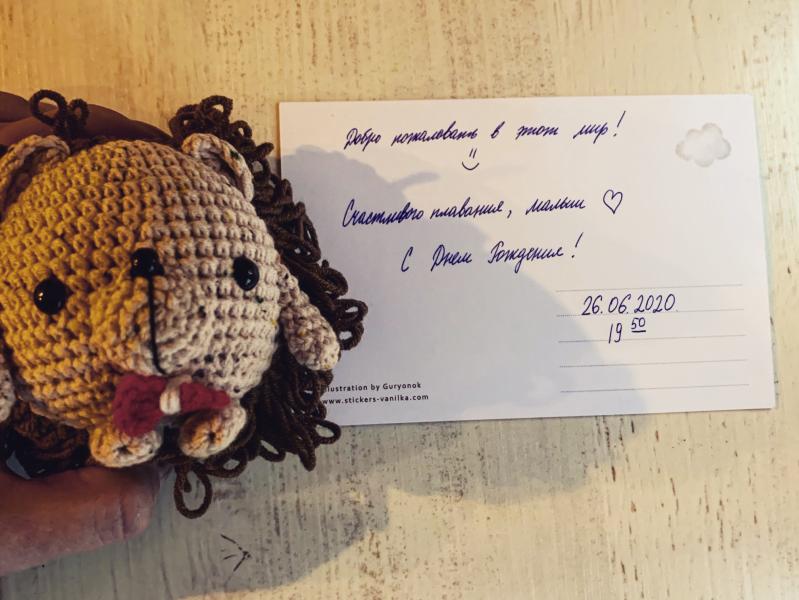 Добро пожаловать в этот мир!
Счастливого плавания, малыш ♡
С Днем Рождения!
26.06.2020.
19 50
llustration by Guryonok
www.stickers-vanilka.com